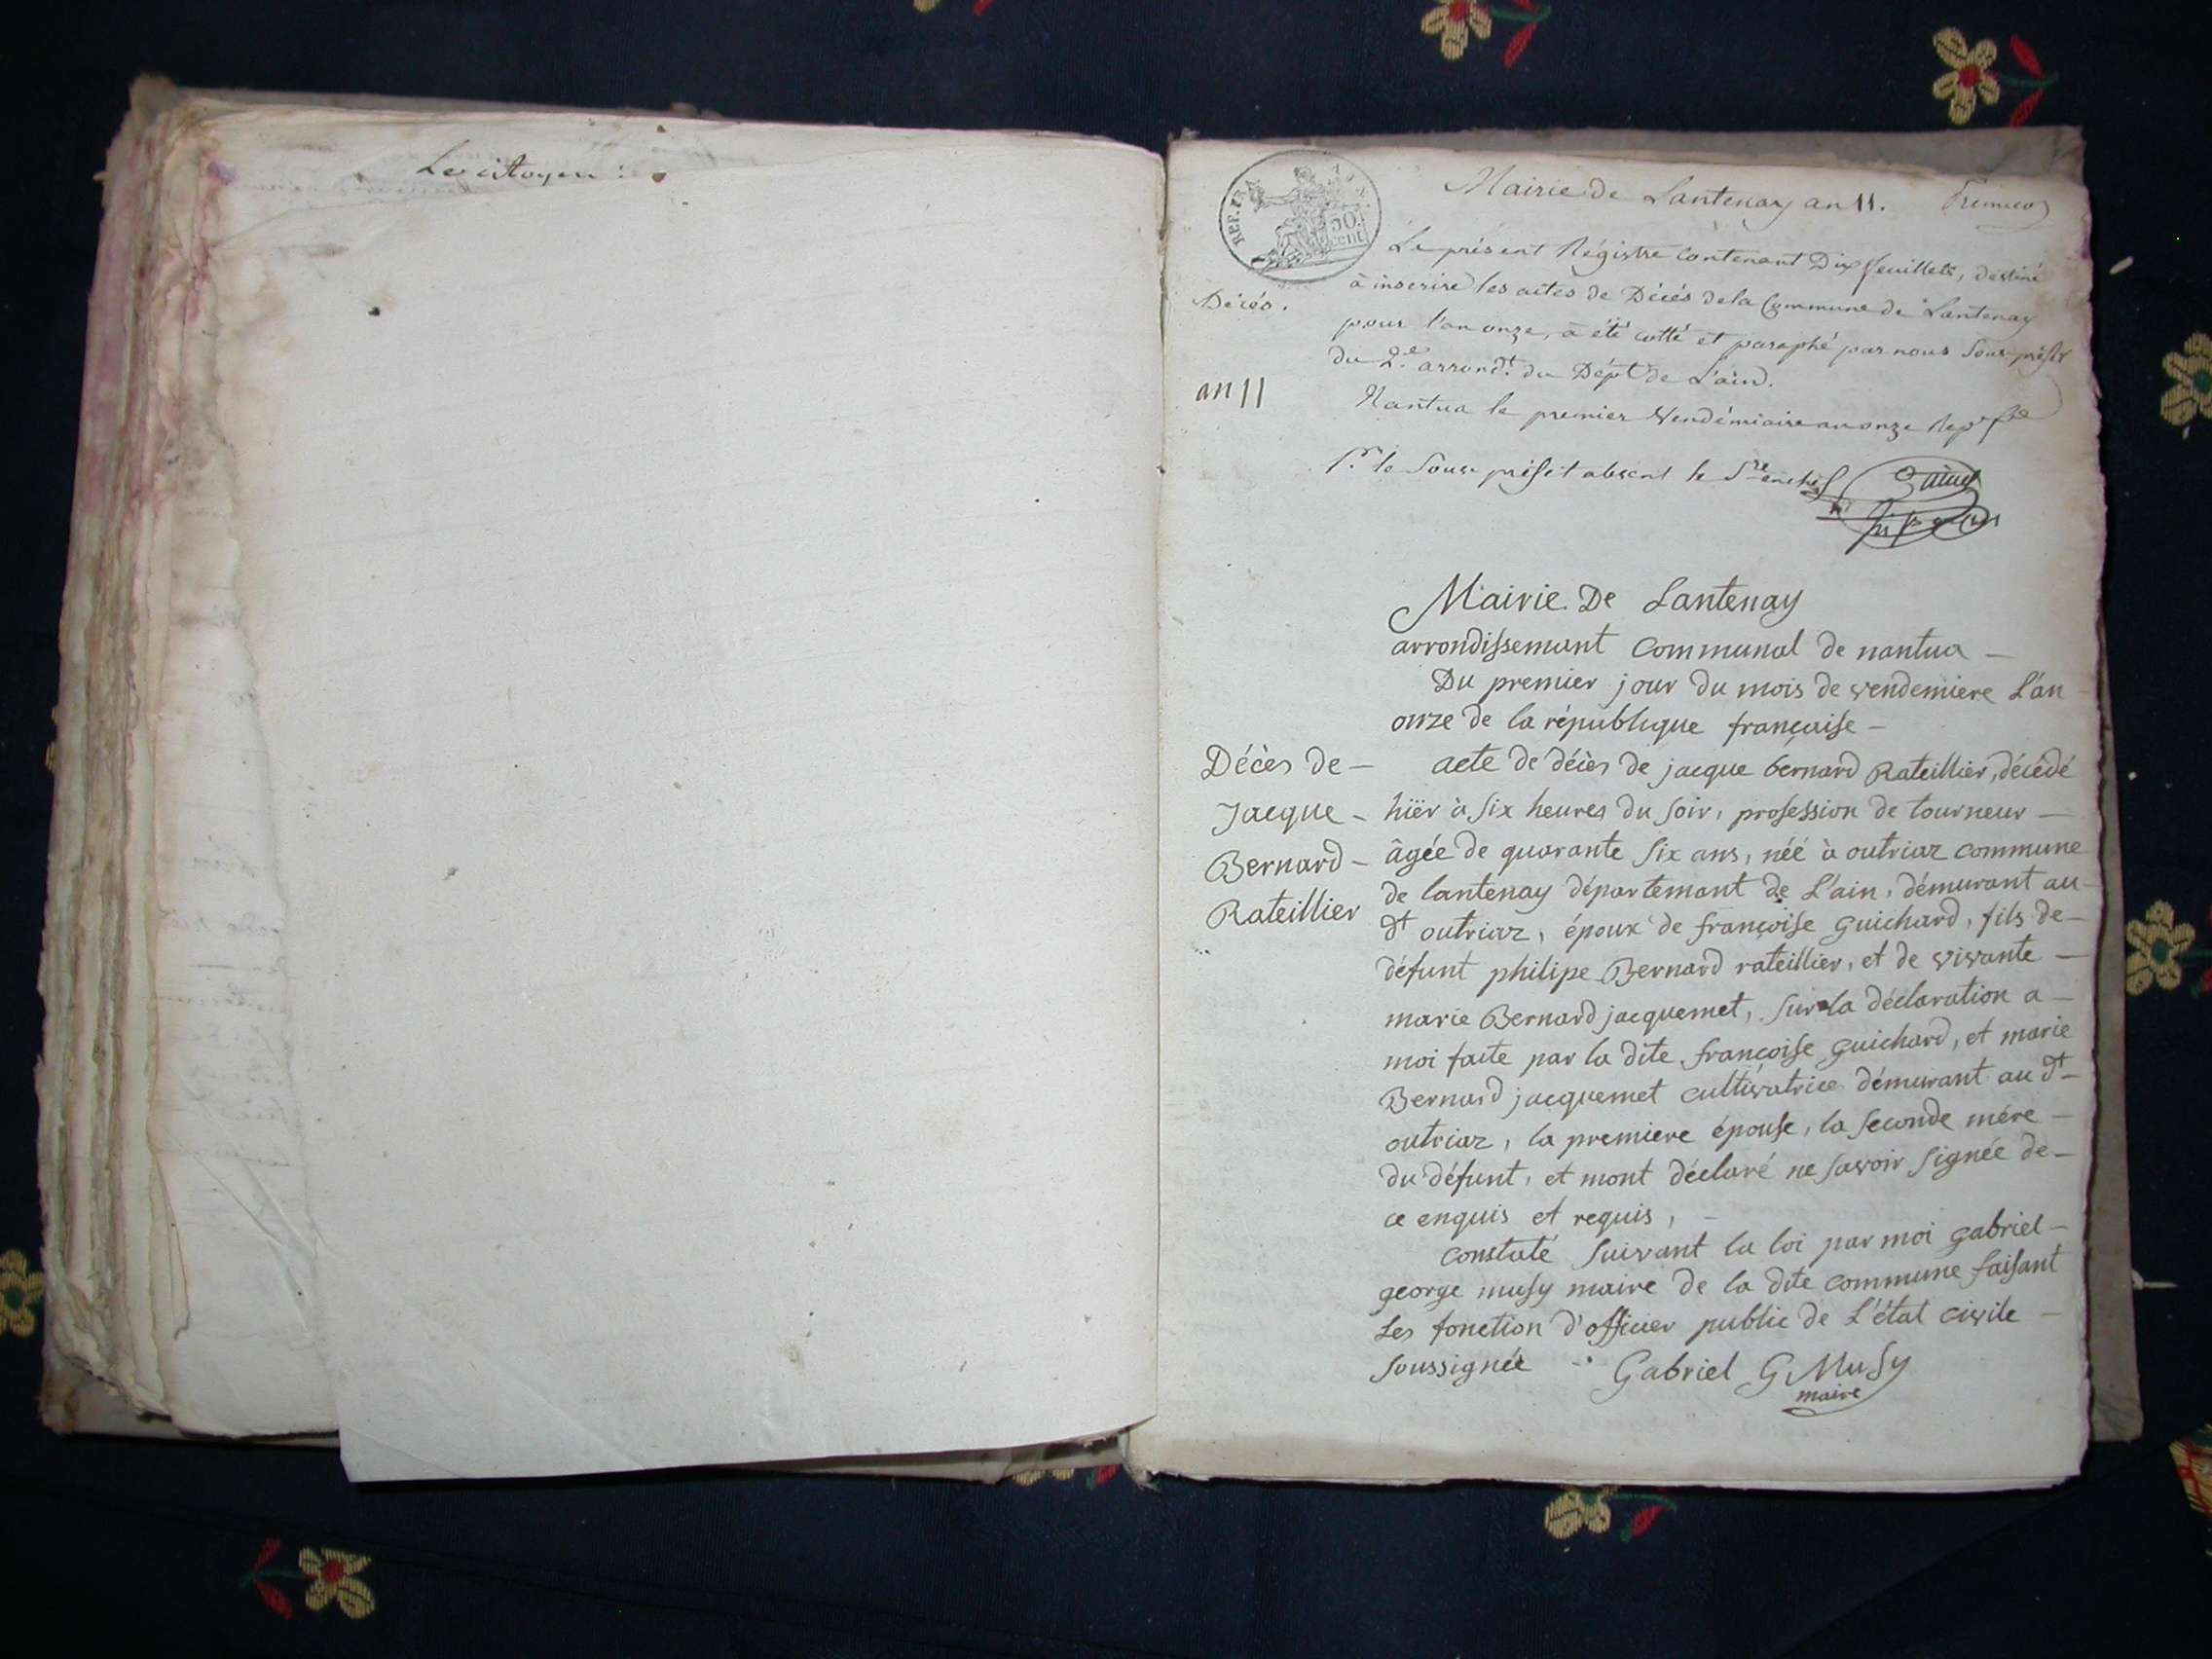 Le citoyen :
Mairie de Lantenay an 11. Premier
REP. FRA
50.
cent
Le présent Régistre Contenant Dix feuillets, destiné
à inscrire les actes de Décés de la Commune de Lantenay
pour l'an onze, à été cotté et paraphé par nous Sous-préfet
du 2.e arrond.t du Dépt de L'ain.
Décés.
an 11
Nantua le premier Vendémiaire an onze
P.r le Sous préfet absent le
Mairie De Lantenay
arrondissemant Communal de nantua —
Du premier jour du mois de vendemiere L'an
onze de la républiqque françaisse —
Décès de —
Jacque —
Bernard —
Rateillier
acte de décès de jacque bernard Rateillier, décédé
hïer à six heures du soir, profession de tourneur —
âgée de quarante six ans, néé à outriaz commune
de lantenay départemant de L'ain, démurant au —
dt outriaz, époux de françoise guichard, fils de —
défunt philipe Bernard rateillier, et de vivante —
marie Bernard jacquemet, sur la déclaration a —
moi faite par la dite françoise guichard, et marie
Bernard jacquemet cultivatrices démurant au dt —
outriaz, la premiere épouse, la seconde mére —
du défunt, et mont déclaré ne savoir signée de —
ce enquis et requis, —
constaté suivant la loi par moi gabriel —
george musy maire de la dite commune faisant
Les fonction d'officier public de L'état civile —
soussignée — Gabriel G Musy
maire